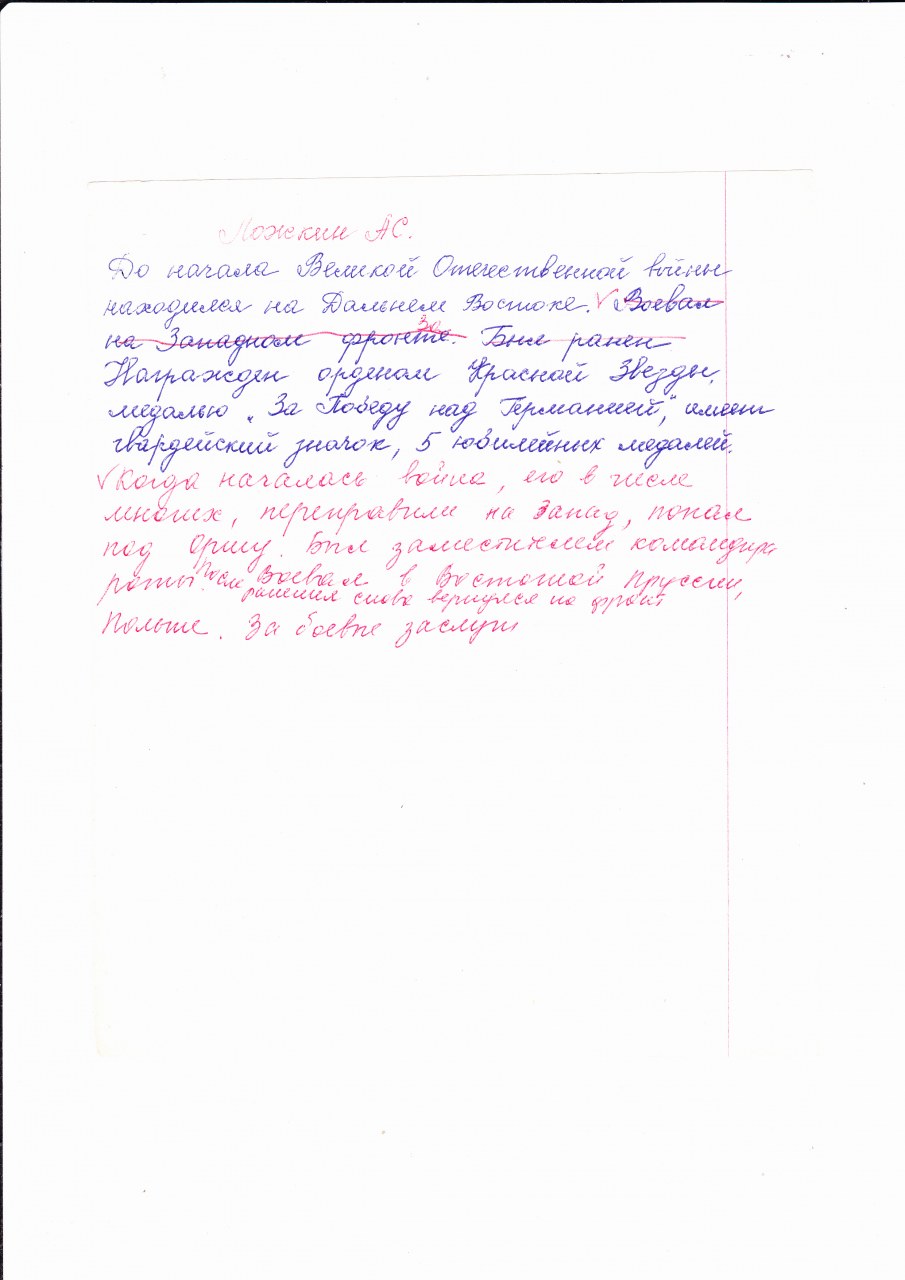 Ложкин А.С.
До начала Великой Отечественной войны
находился на Дальнем Востоке. √ Воевал
За
на Западном фронте. Был ранен
Награжден орденом Красной Звезды,
медалью „За Победу над Германией", имеет
гвардейский значок, 5 юбилейных медалей.
√ Когда началась война, его в числе
многих, переправили на Запад, попал
под Оршу. Был заместителем командира
роты. После Воевал в Восточной Пруссии,
ранения снова вернулся на фронт
Польше. За боевые заслуги